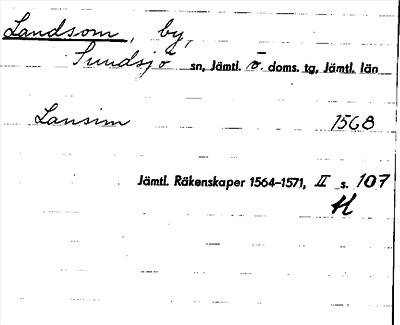 Landsom, by,
Sundsjö sn, Jämtl. ö. doms. tg, Jämtl. län
Lansim 1568
Jämtl. Räkenskaper 1564–1571, II s. 107
H